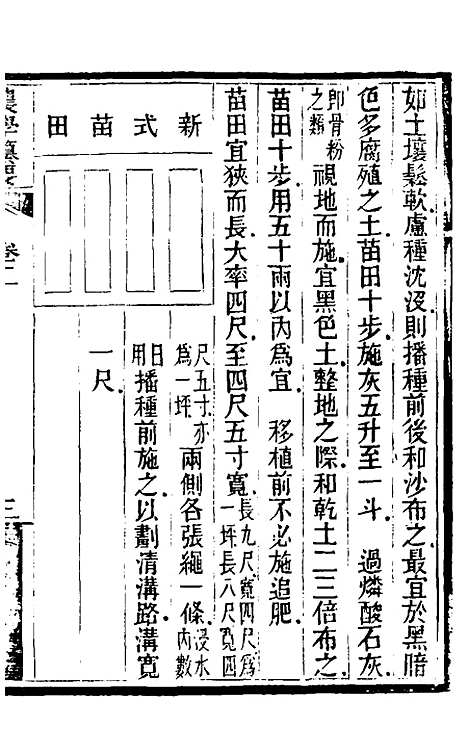 如土壤鬆軟慮種沈没則播種前後和沙布之最宜於黑暗
色多腐殖之土苗田十步施灰五升至一斗 過燐酸石灰
即骨粉之類視地而施宜黑色土整地之際和乾土二三倍布之
苗田十步用五十兩以內為宜 移植前不必施追肥
苗田宜狹而長大率四尺至四尺五寸寬長九尺寬四尺為一坪長八尺寬四
尺五寸亦為一坪兩側各張繩一條浸水內數
日用播種前施之以劃清溝路溝寬
一尺
新式苗田
農學纂要
卷二